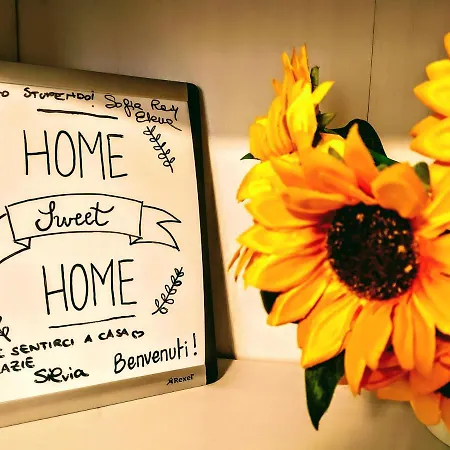 O STUPENDO! Sofia
Elena
HOME
Sweet
HOME
E SENTIRCI A CASA ♡
RAZIE
Silvia
Benvenuti!
Rexel